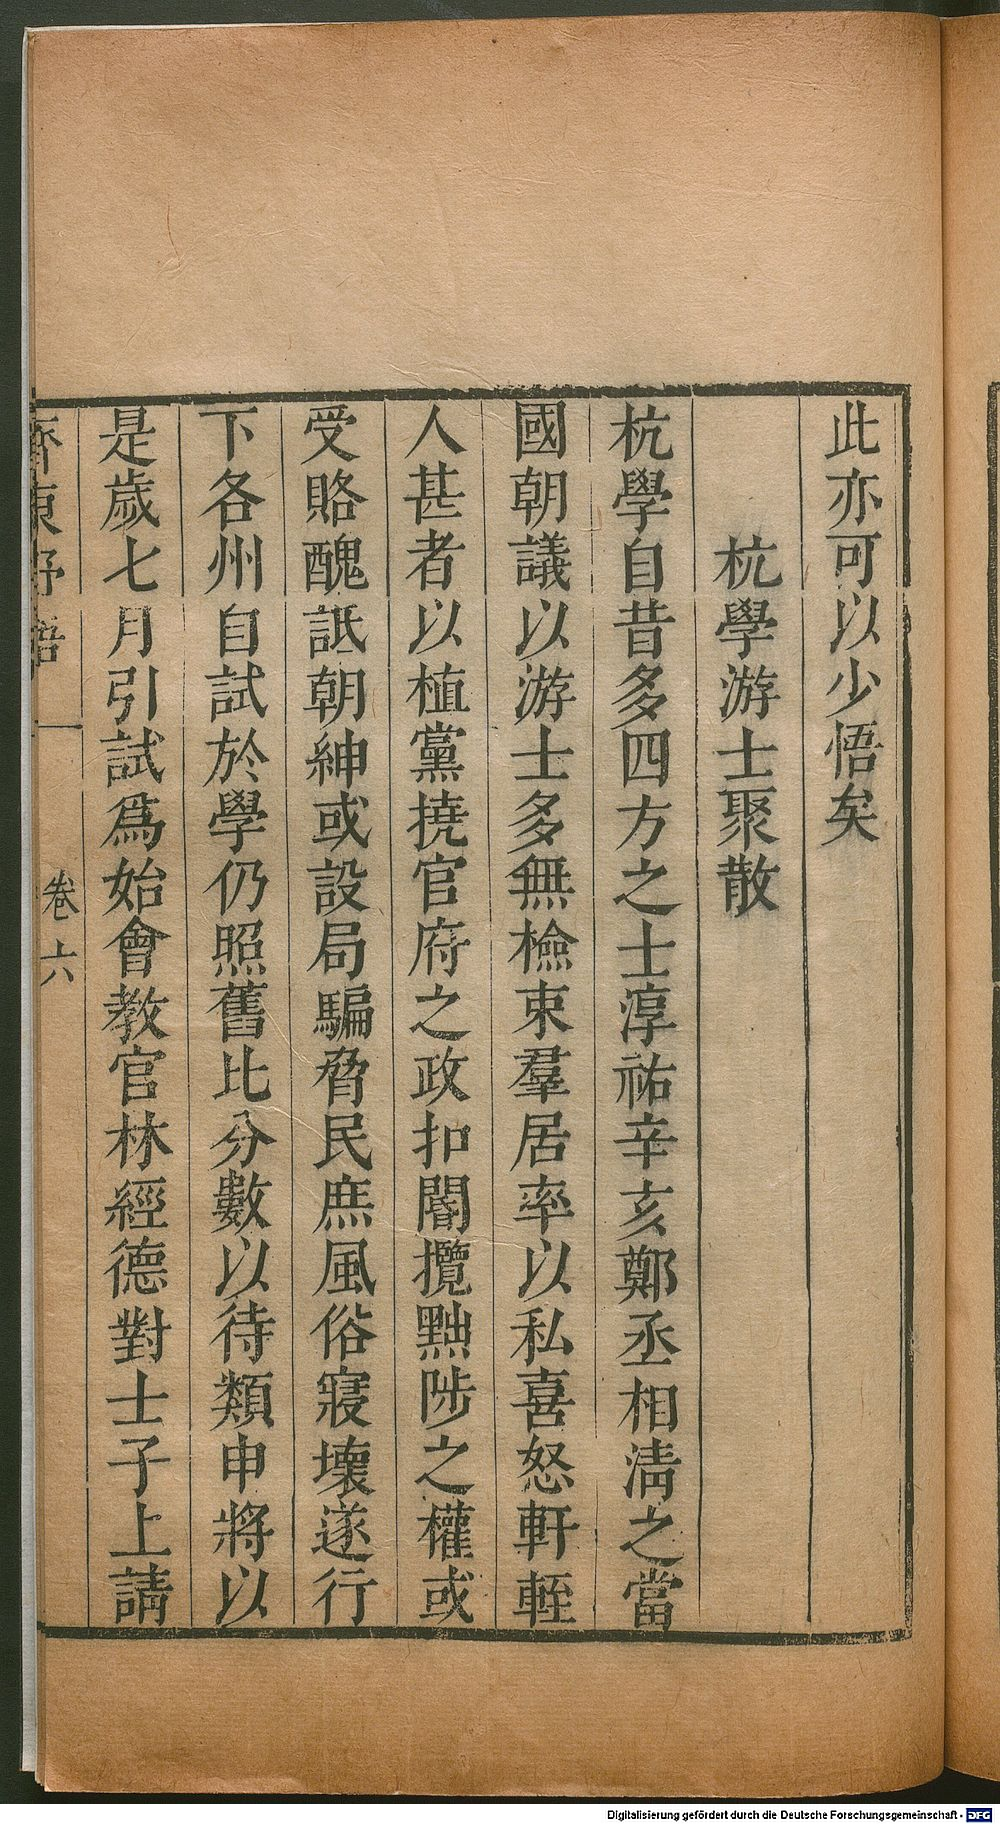 此亦可以少悟矣
杭學游士聚散
杭學自昔多四方之士淳祐辛亥鄭丞相淸之當
國朝議以游士多無檢束羣居率以私喜怒軒輊
人甚者以植黨撓官府之政扣閽攬黜陟之權或
受賂醜詆朝紳或設局騙脅民庶風俗寖壞遂行
下各州自試於學仍照舊比分數以待類申將以
是歲七月引試爲始會教官林經德對士子上請
齊東野語
卷六
Digitalisierung gefördert durch die Deutsche Forschungsgemeinschaft - DFG